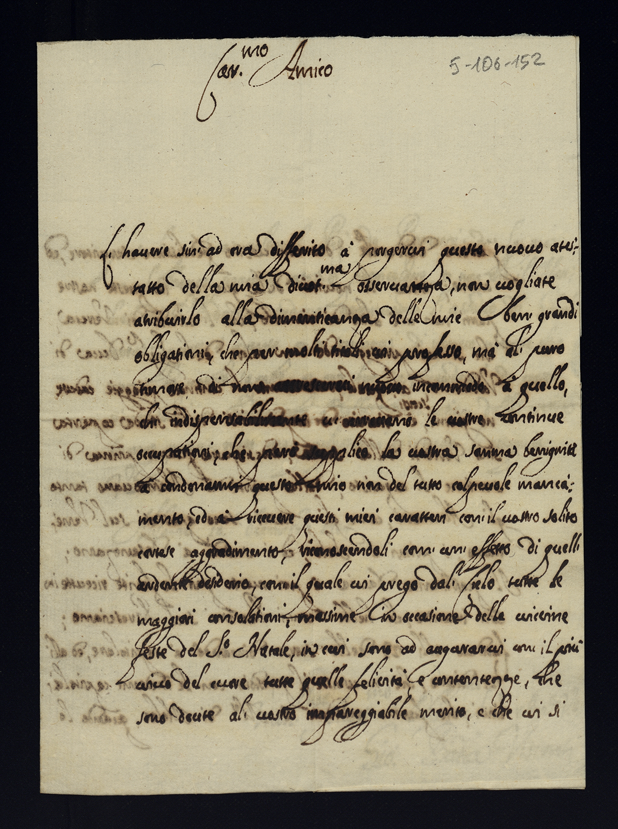 Car.mo Amico
5-106-152
L' havere sin' ad ora differito à porgervi questo nuovo ates-
tatto della mia divot.ma osservanza, non vogliate
atribuirlo alla dimenticanza delle mie ben grandi
obligationi, che per molti titoli vi professo, mà al puro
timore di non incommodo à quello,
che indispensabilmente vi le vostre continue
occupationi, che però supplico la vostra somma benignità
à condonarmi questo mio non del tutto colpevole manca-
mento, ed à ricevere questi miei caratteri con il vostro solito
cortese aggradimento, riconoscendoli come un effetto di quell'
ardente desiderio, con il quale vi prego dal Cielo tutte le
maggiori consolationi, massime in occasione delle vicine
feste del S.o Natale, in cui sono ad augurarvi con il più
vivo del cuore tutte quelle felicità, e contentezze, che
sono dovute al vostro impareggiabile merito, e che vi si